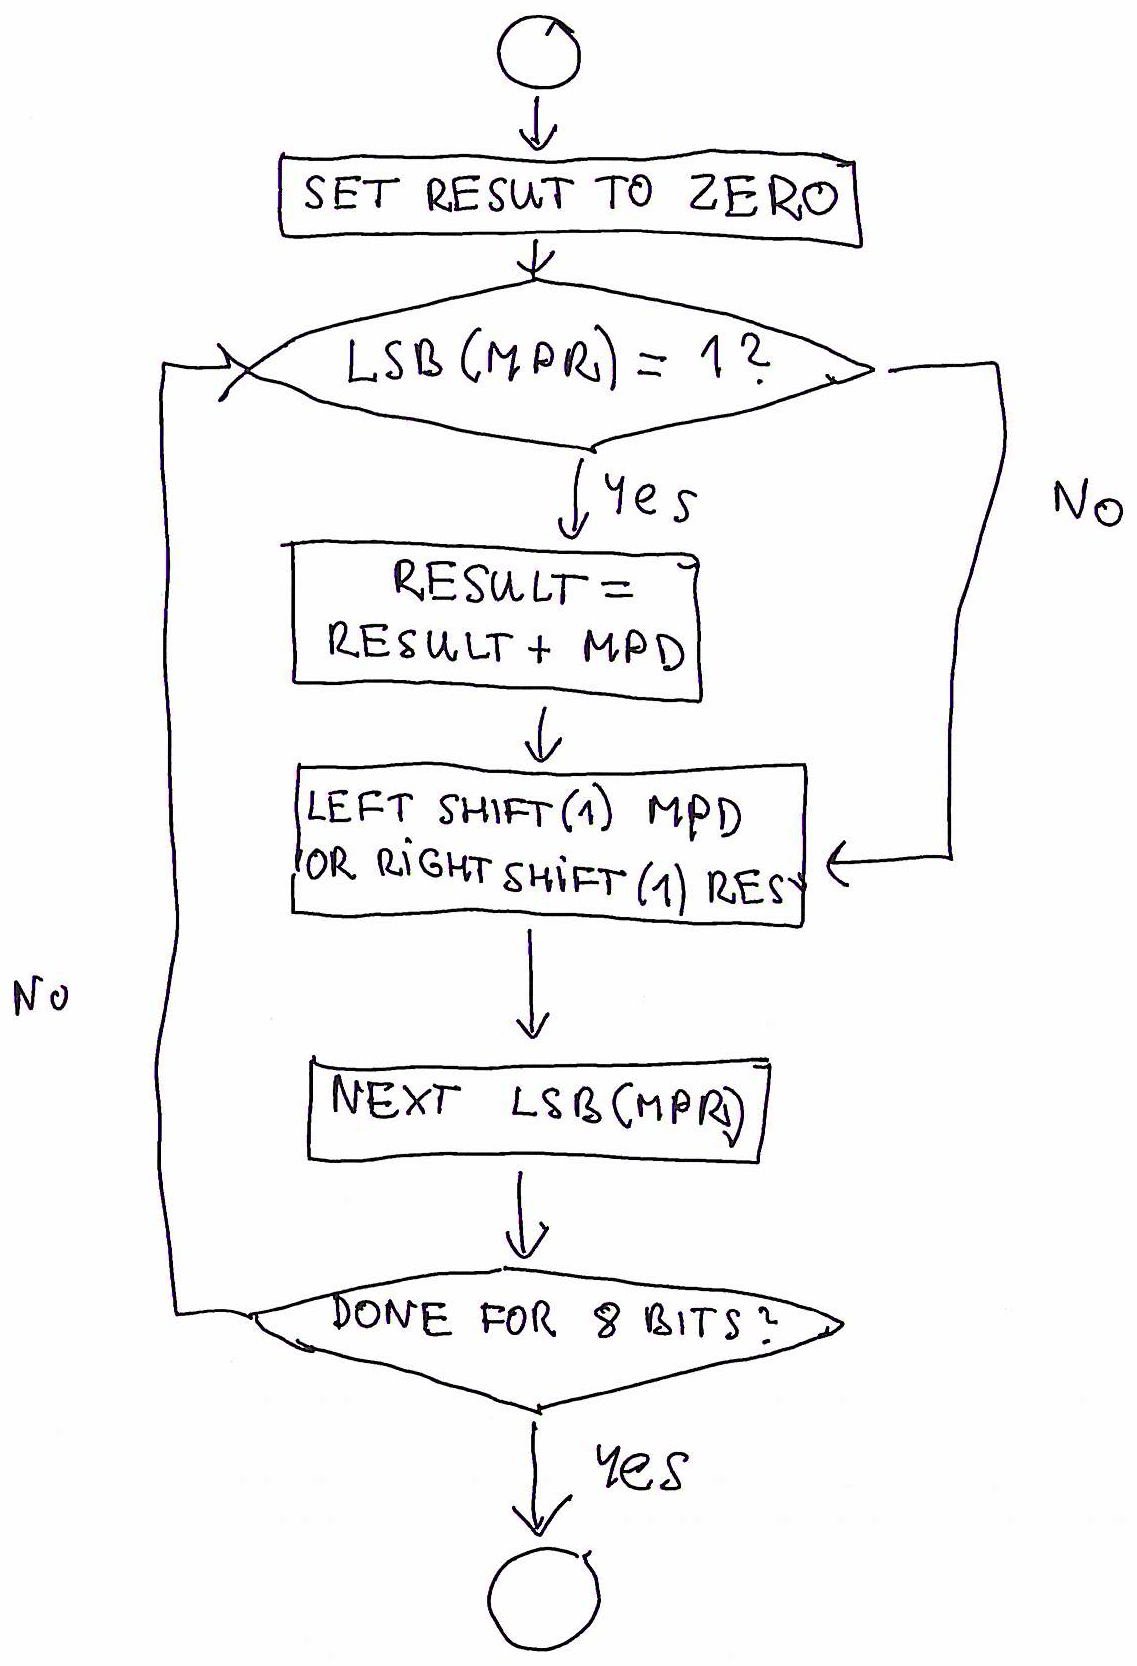 SET RESUT TO ZERO
LSB (MPR) = 1?
Yes
NO
RESULT =
RESULT + MPD
LEFT SHIFT (1) MPD
OR RIGHT SHIFT (1) RES
NO
NEXT LSB (MPR)
DONE FOR 8 BITS?
Yes